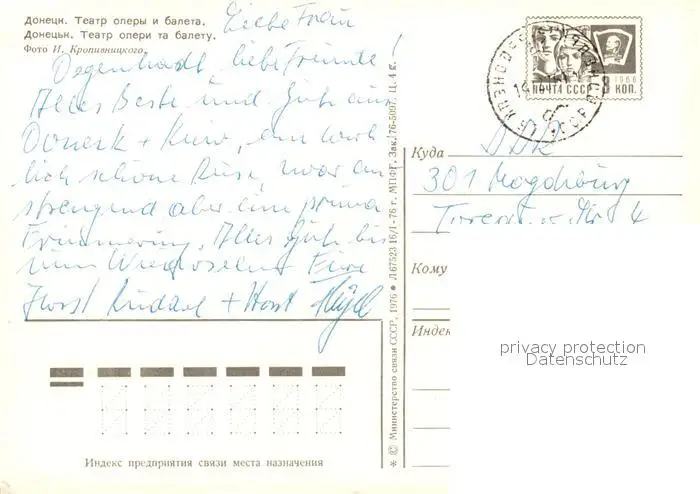 Донецк. Театр оперы и балета.
Донецьк. Театр опери та балету.
Фото И. Кропивницкого.
Liebe Frau
Degenhardt, liebe Freunde!
Alles Beste und Gute aus
Donezk + Kiew, ein wirk
lich schöne Reise, zwar an
strengend aber eine prima
Erinnerung. Alles Gute bis
zum Wiedersehen Eure
Horst + Horst
ПОЧТА СССР 8 КОП.
1966
Куда DDR
301 Magdeburg
4
Кому
Индек
privacy protection
Datenschutz
* © Министерство связи СССР, 1976 ● Л 67523 16/I-76 г. МПФГ. Зак. 76-5097. Ц. 4 к.
Индекс предприятия связи места назначения